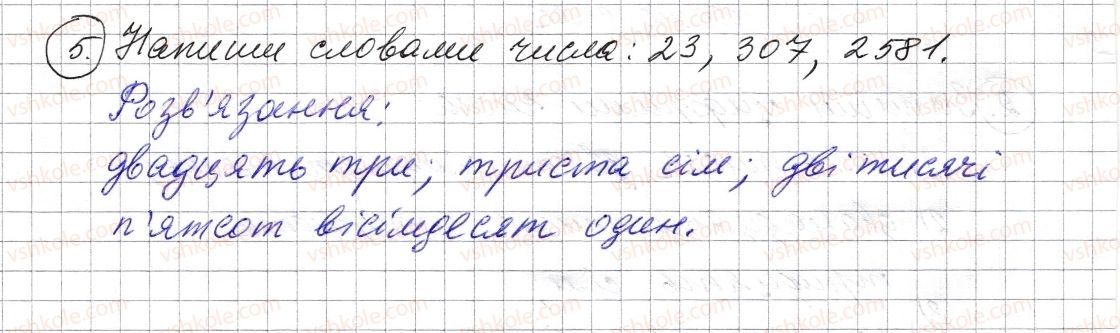 5. Напиши словами числа: 23, 307, 2581.
Розв'язання:
двадцять три; триста сім; дві тисячі
п'ятсот вісімдесят один.